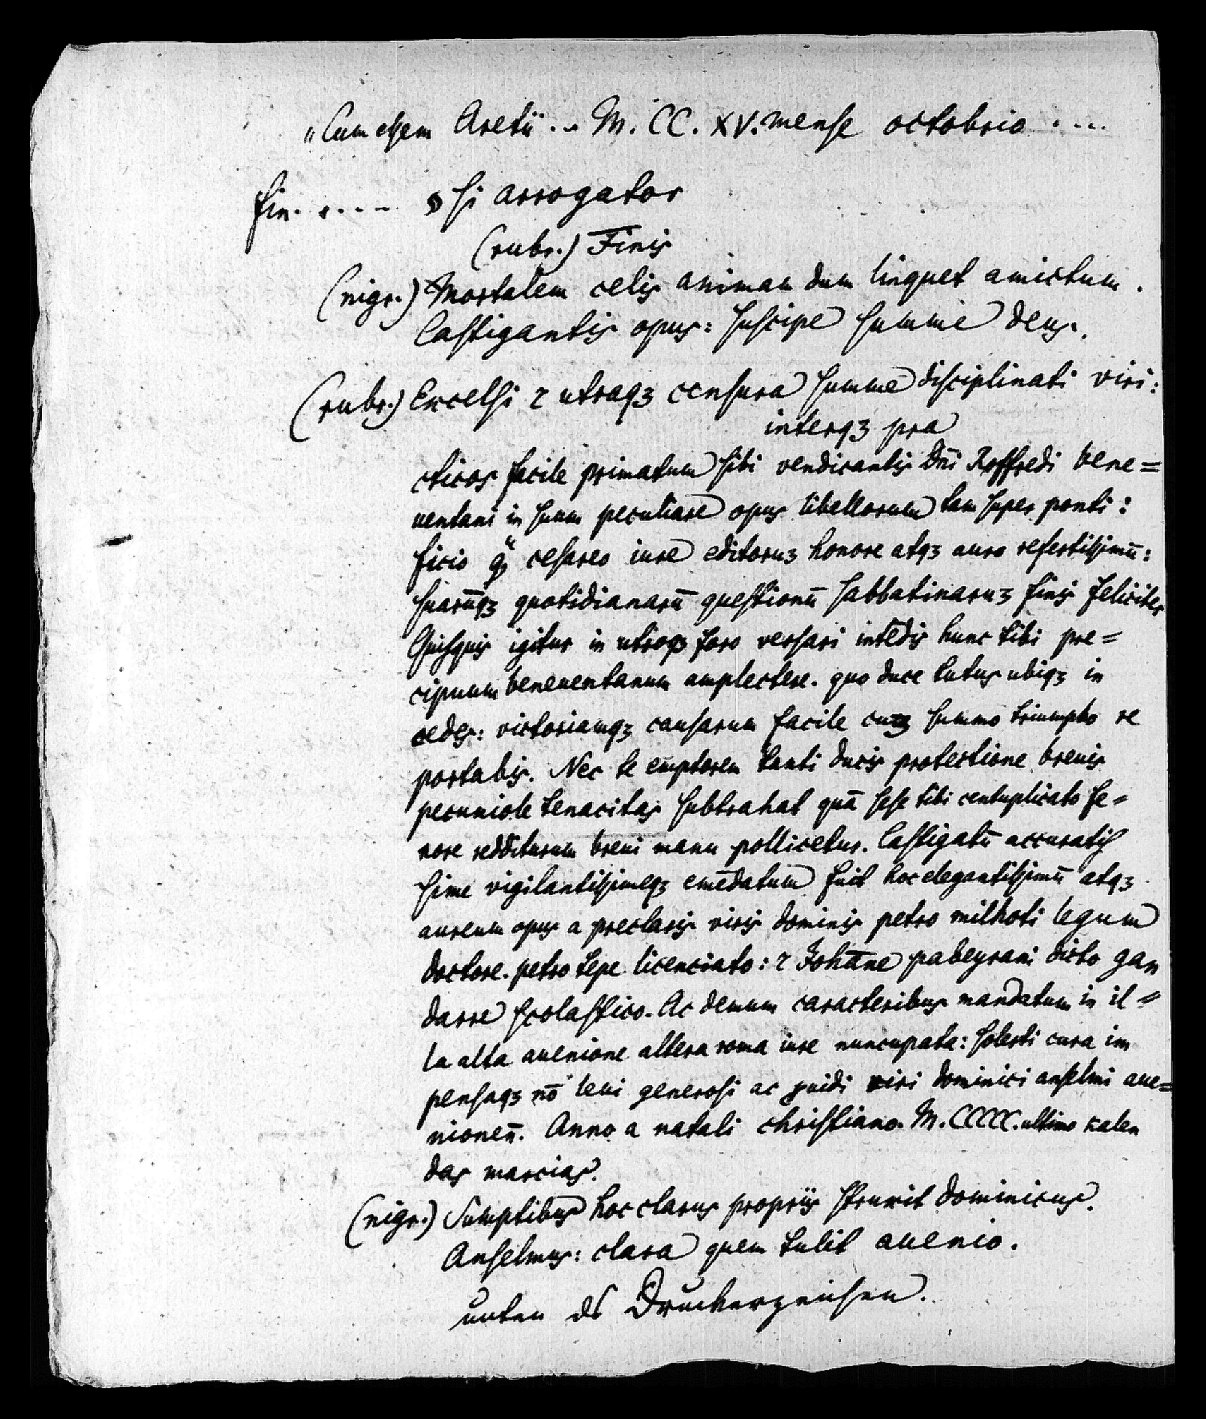 „Cum essem Aretii .. M. CC. XV. mense octobrio ....
fin. .... si arrogator
(rubr.) Finis
(nigr.) Mortalem celis animam dum linquet amictum.
Castigantis opus: suscipe summe deus.
(rubr.) Excelsi ⁊ utraqꝫ censura summe disciplinati viri:
interqꝫ pra
cticos facile primatum sibi vendicantis dn̄i Roffredi bene=
uentani in suum peculiare opus libellorum tam super ponti:
ficio qͣꝫ cesareo iure editorumꝫ honore atqꝫ auro refertissimū:
suarūqꝫ quotidianarū questionū sabbatinaruꝫ finis feliciter
Quisquis igitur in utroqꝫ foro versari intēdis hunc tibi pre=
cipuum beneuentanum amplectere. quo duce tutus ubiqꝫ in
cedes: victoriamqꝫ causarum facile cuꝫ summo triumpho re
portabis. Nec te emptorem tanti ducis protectione breuis
pecuniole tenacitas subtrahat quā sese tibi centuplicato fe=
nore redditurum breui manu pollicetur. Castigatū accuratis
sime vigilantissimeqꝫ emēdatum fuit hoc elegantissimū atqꝫ
aureum opus a preclaris viris dominis petro milhoti legum
doctore. petro tepe licenciato: ⁊ Johāne pabeyrani dicto gan
darre scolastico. Ac demum caracteribus mandatum in il=
la alta auenione altera roma iure nuncupata: solerti cura im
pensaqꝫ nō leui generosi ac prouidi viri dominici anselmi aue=
nionen̄. Anno a natali christiano. M. CCCCC. ultimo kalen
das marcias.
(nigr.) Sumptibus hoc clarus propriis struxit dominicus.
Anselmus: clara quem tulit auenio.
unten ds Druckerzeichen.